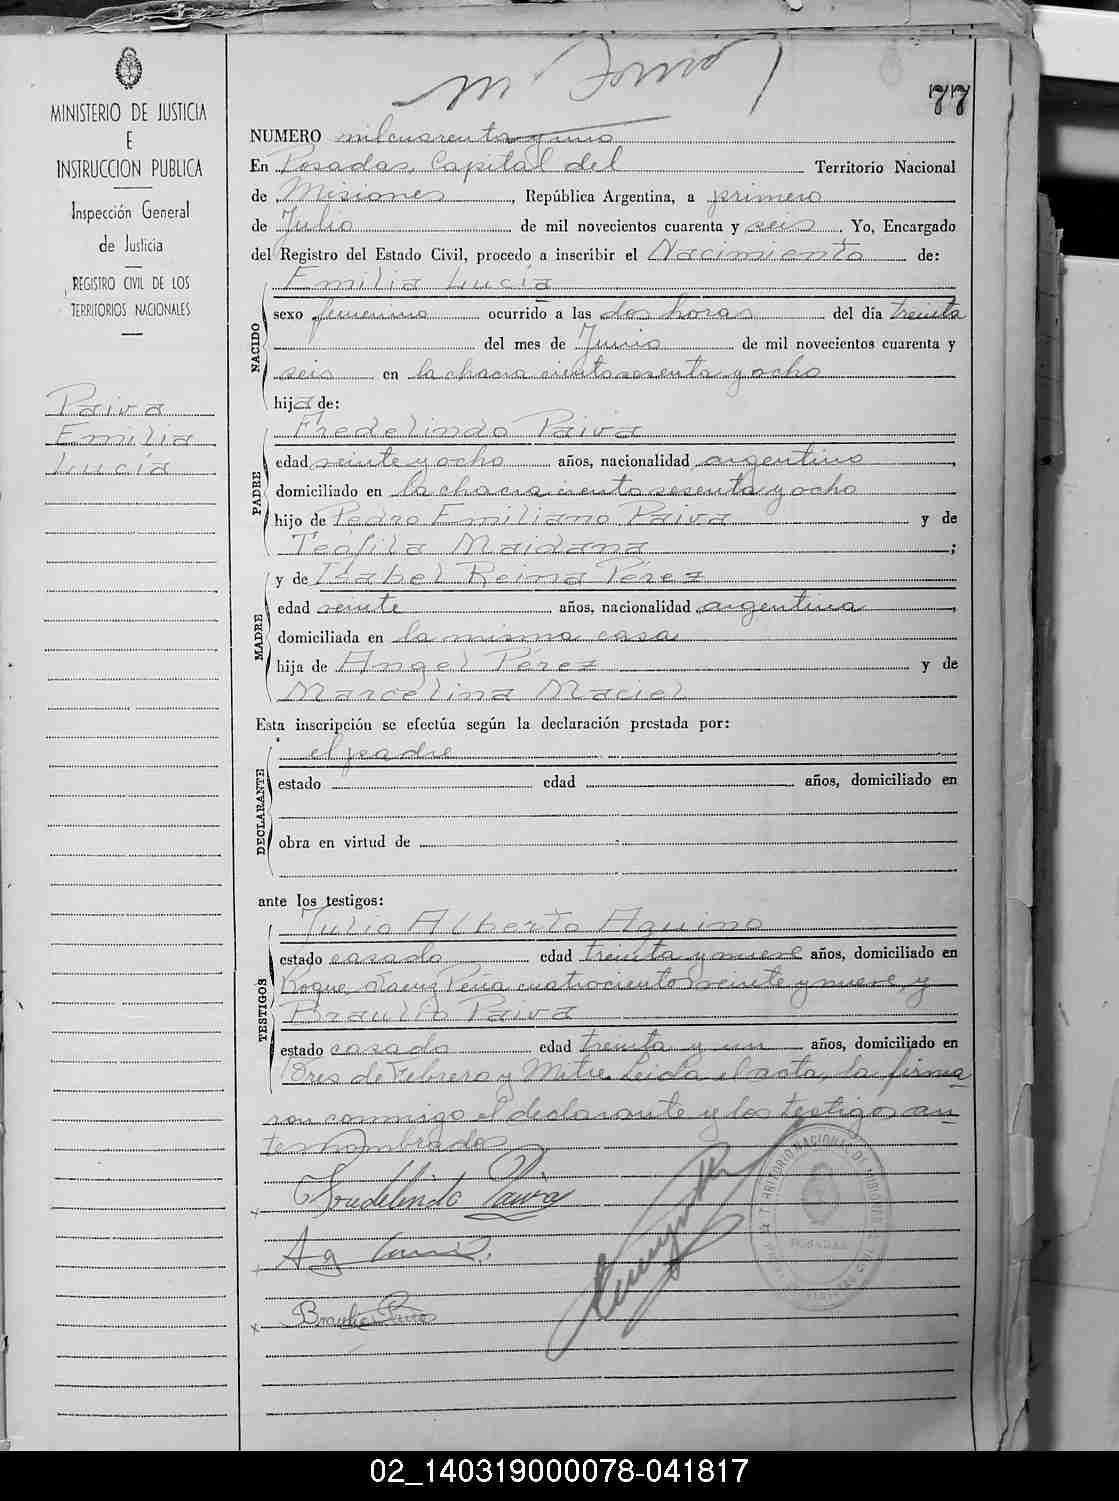 77
MINISTERIO DE JUSTICIA
E
INSTRUCCION PUBLICA
Inspección General
de Justicia
REGISTRO CIVIL DE LOS
TERRITORIOS NACIONALES
Paiva
Emilia
Lucía
NUMERO mil cuarenta y uno
En Posadas, Capital del Territorio Nacional
de Misiones, República Argentina, a primero
de Julio de mil novecientos cuarenta y seis, Yo, Encargado
del Registro del Estado Civil, procedo a inscribir el Nacimiento de:
Emilia Lucía
NACIDO
sexo femenino ocurrido a las dos horas del día treinta
del mes de Junio de mil novecientos cuarenta y
seis en la chacra ciento sesenta y ocho
hija de:
Fredelindo Paiva
PADRE
edad veinte y ocho años, nacionalidad argentino,
domiciliado en la chacra ciento sesenta y ocho
hijo de Pedro Emiliano Paiva y de
Teófila Maidana;
y de Isabel Reina Pérez
MADRE
edad veinte años, nacionalidad argentina,
domiciliada en la misma casa
hija de Angel Pérez y de
Marcelina Maciel
Esta inscripción se efectúa según la declaración prestada por:
el padre
DECLARANTE
estado edad años, domiciliado en
obra en virtud de
ante los testigos:
Julio Alberto Aquino
TESTIGOS
estado casado edad treinta y nueve años, domiciliado en
Roque Saenz Peña cuatrocientos veinte y nueve, y
Braulio Paiva
estado casado edad treinta y un años, domiciliado en
Tres de Febrero y Mitre. Leída el acta, la firma
ron conmigo el declarante y los testigos an
tes nombrados
Fredelindo Paiva
Braulio Paiva
POSADAS
02_140319000078-041817